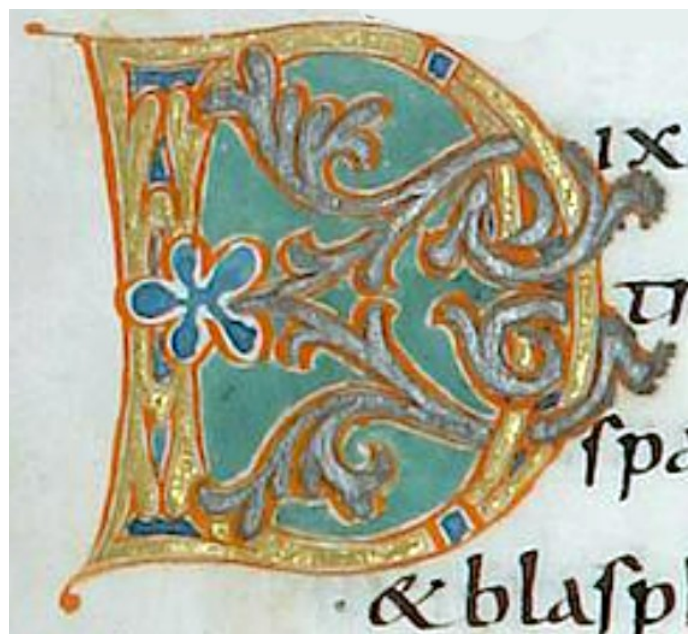 DIX
ſpa
&blaſp